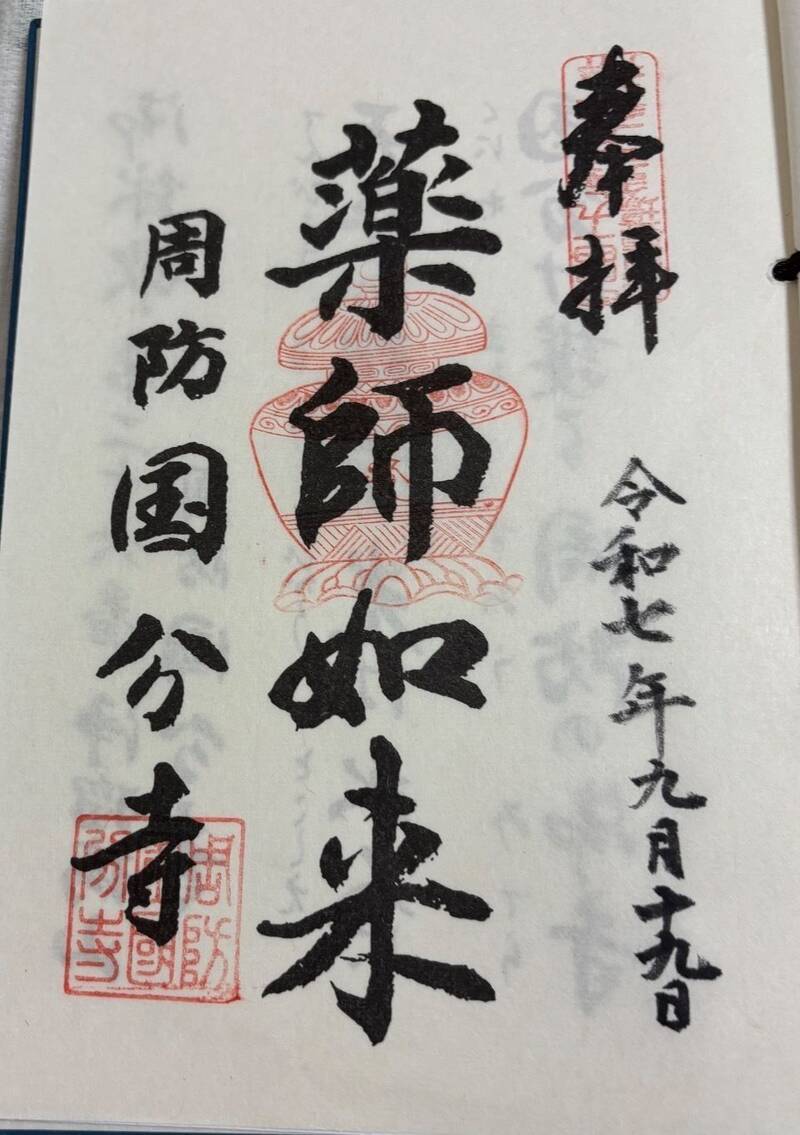 奉拝
令和七年九月十九日
薬師如来
周防国分寺
周防
國分寺